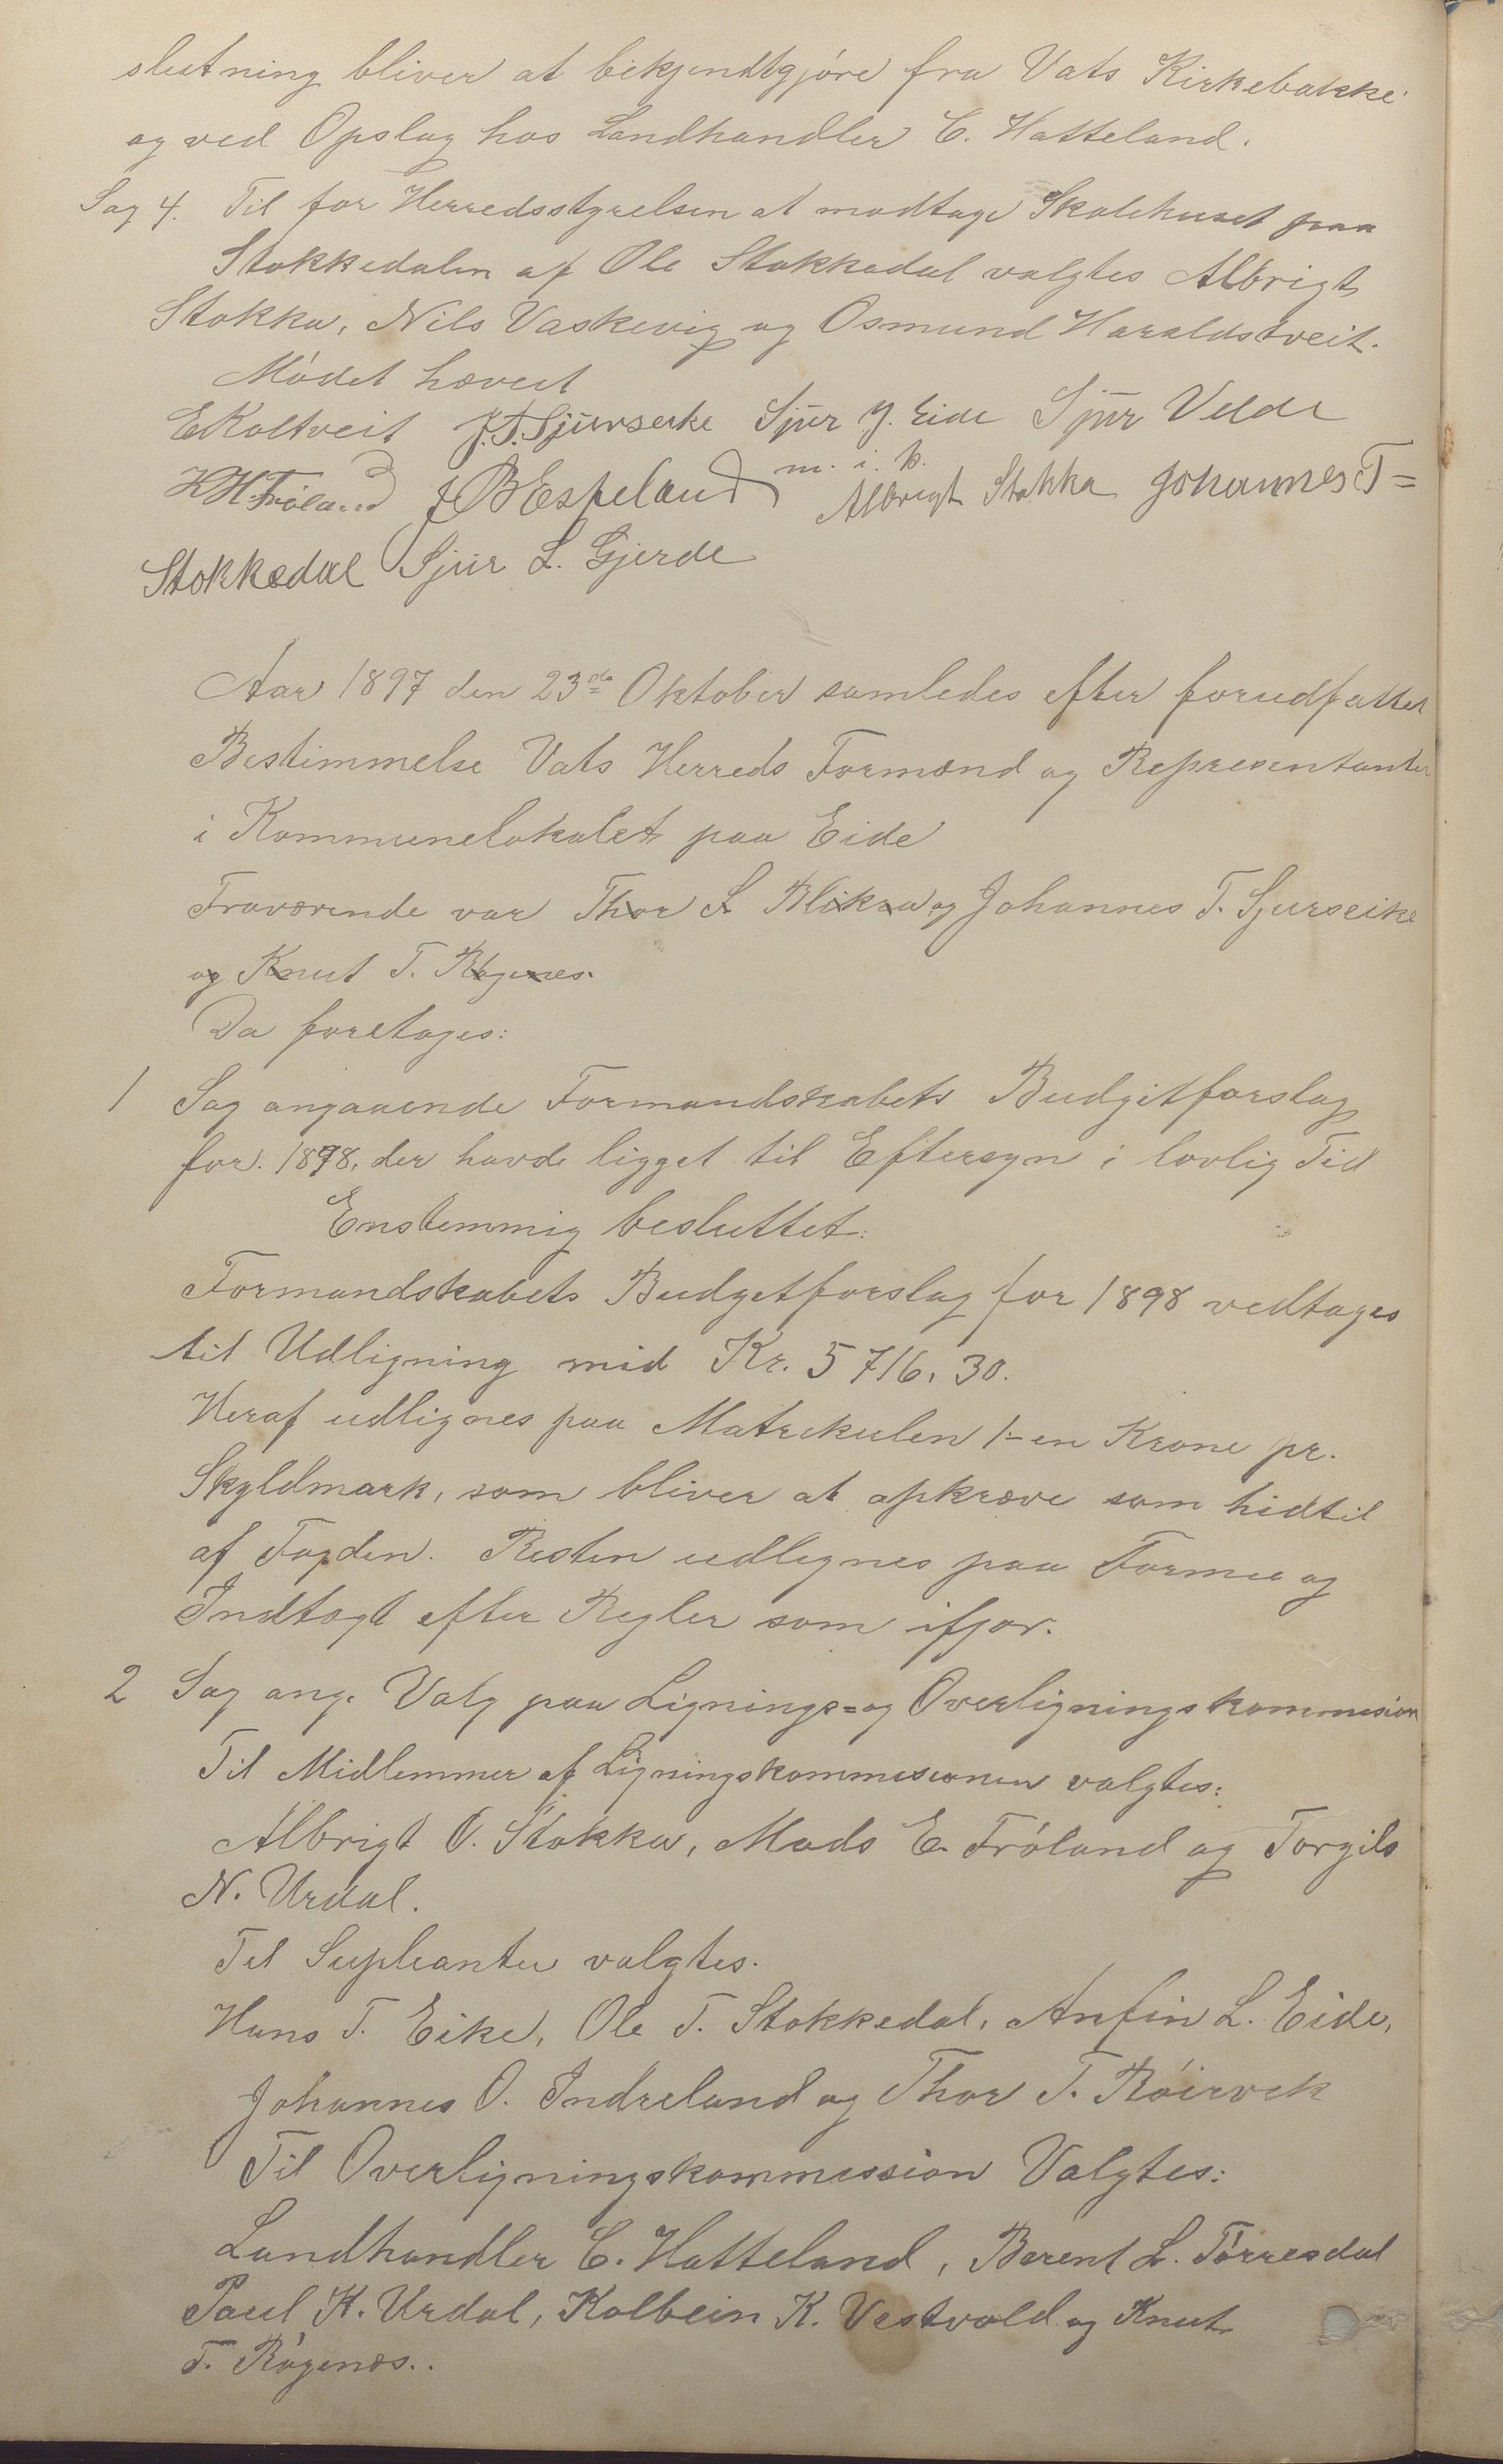 slutning bliver at bekjendtgjøre fra Vats Kirkebakke
og ved Opslag hos Landhandler C. Hatteland.
Sag 4. Til for Herredsstyrelsen at modtage Skolehuset paa
Stokkedalen af Ole Stokkedal valgtes Albrigt
Stokka, Nils Vaskevig og Osmund Haraldstveit.
Mødet hævet
E Koltveit J. T. Sjurseike Sjur J. Eide Sjur Velde
H H. Frøland J B Espeland m. i. p. Albrigt Stokka Johannes T=
Stokkedal Sjur L. Gjerde
Aar 1897 den 23de Oktober samledes efter forudfattet
Bestimmelse Vats Herreds Formænd og Representanter
i Kommunelokalet paa Eide
Fraværende var Thor L Blikra og Johannes T. Sjurseike
og Knut T. Røgenes.
Da foretages:
1 Sag angaaende Formandskabets Budgetforslag
for. 1898, der havde ligget til Eftersyn i lovlig Tid
Enstemmig besluttet:
Formandskabets Budgetforslag for 1898 vedtages
til Udligning med Kr. 5716,30.
Heraf udlignes paa Matrekulen 1- en Krone pr.
Skyldmark, som bliver at opkræve som hidtil
af Fogden. Resten udlignes paa Formue og
Indtægt efter Regler som ifjor.
2 Sag ang. Valg paa Lignings= og Overligningskommesion
Til Midlemmer af Ligningskommesionen valgtes:
Albrigt O. Stokka, Mads E. Frøland og Torgils
N. Urdal.
Til Supleanter valgtes.
Hans T. Eike, Ole T. Stokkedal, Anfin L. Eide,
Johannes O. Indreland og Thor T. Røirvek
Til Overligningskommession Valgtes:
Landhandler C. Hatteland, Berent L. Tørresdal
Paul K. Urdal, Kolbein K. Vestvold og Knut
T. Røgenæs..